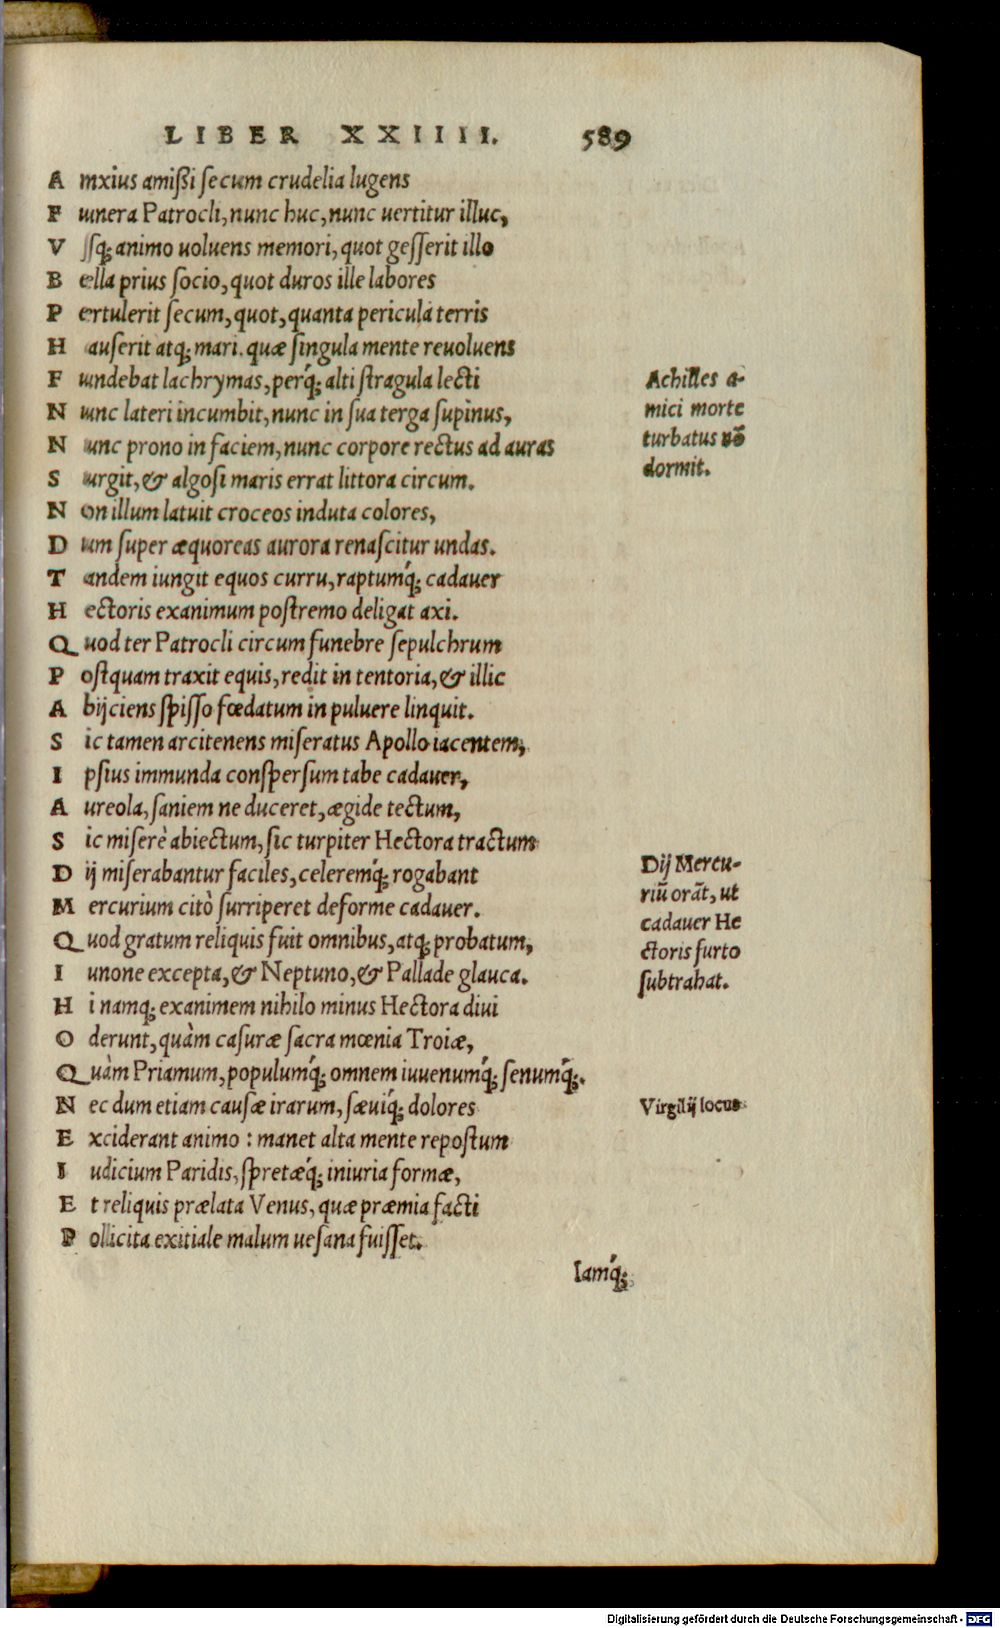 LIBER XXIIII. 589
A mxius amißi secum crudelia lugens
F unera Patrocli, nunc huc, nunc uertitur illuc,
V sq; animo uoluens memori, quot gesserit illo
B ella prius socio, quot duros ille labores
P ertulerit secum, quot, quanta pericula terris
H auserit atq; mari. quæ singula mente reuoluens
F undebat lachrymas, perq́; alti stragula lecti
N unc lateri incumbit, nunc in sua terga supinus,
N unc prono in faciem, nunc corpore rectus ad auras
S urgit, & algosi maris errat littora circum.
N on illum latuit croceos induta colores,
D um super æquoreas aurora renascitur undas.
T andem iungit equos curru, raptumq́; cadauer
H ectoris exanimum postremo deligat axi.
Q uod ter Patrocli circum funebre sepulchrum
P ostquam traxit equis, redit in tentoria, & illic
A bijciens spisso fœdatum in puluere linquit.
S ic tamen arcitenens miseratus Apollo iacentem,
I psius immunda conspersum tabe cadauer,
A ureola, saniem ne duceret, ægide tectum,
S ic miserè abiectum, sic turpiter Hectora tractum
D ij miserabantur faciles, celeremq́; rogabant
M ercurium citò surriperet deforme cadauer.
Q uod gratum reliquis fuit omnibus, atq; probatum,
I unone excepta, & Neptuno, & Pallade glauca.
H i namq; exanimem nihilo minus Hectora diui
O derunt, quàm casuræ sacra mœnia Troiæ,
Q uàm Priamum, populumq́; omnem iuuenumq́; senumq́;.
N ec dum etiam causæ irarum, sæuiq́; dolores
E xciderant animo : manet alta mente repostum
I udicium Paridis, spretæq́; iniuria formæ,
E t reliquis prælata Venus, quæ præmia facti
P ollicita exitiale malum uesana fuisset.
Iamq́;
Achilles a-
mici morte
turbatus nõ
dormit.
Dij Mercu-
riũ orãt, ut
cadauer He
ctoris furto
subtrahat.
Virgilij locus
Digitalisierung gefördert durch die Deutsche Forschungsgemeinschaft - DFG